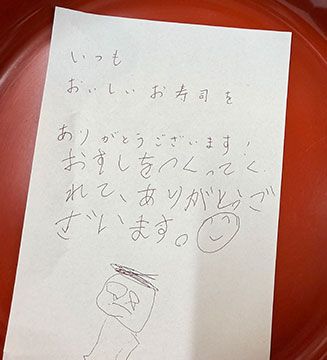 いつも
おいしいお寿司を
ありがとうございます!
おすしをつくってく
れて、ありがとうご
ざいます。